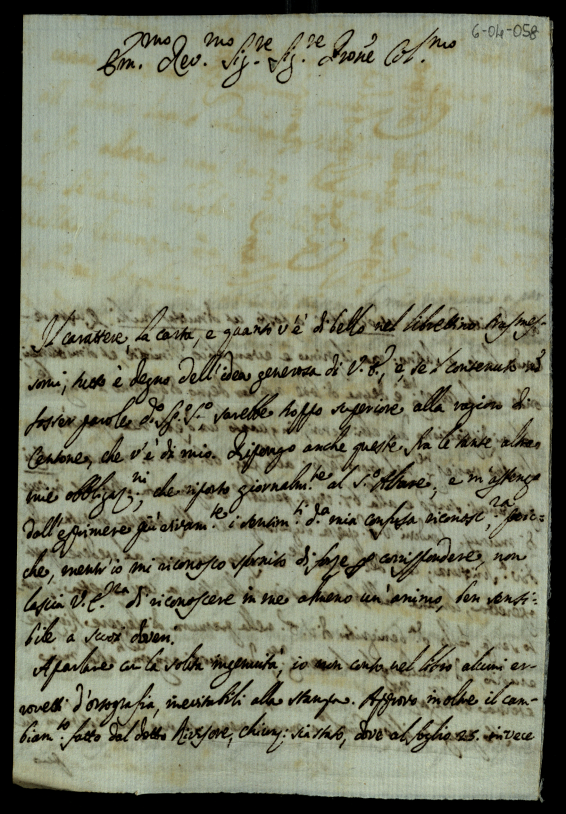 6-04-058
Em.mo Rev.mo Sig.re Sig.re Prone Col.mo
Il carattere, la carta, e quanto v'è di bello nel librettino trasmes-
somi, tutto è degno dell'idea generosa di V. E., e, se 'l contenuto
fosser parole d. Sp.o S.o, sarebbe troppo superiore alla ragion di
Centone, che v'è di mio. Ripongo anche queste fra le tante altre
mie obbligaz.ni, che riporto giornalm.te al S.o Altare, e m'astengo
dall'esprimere più vivam.te i sentim.ti d.a mia confusa riconosc.za, per-
che, mentr'io mi riconosco sfornito di forze p corrispondere, non
lascia V. E.nza di riconoscere in me almeno un'animo, ben sensi-
bile a suoi doveri.
A parlare co la solita ingenuità, io non conto nel libro alcuni er-
rovetti d'ortografia, inevitabili alla stampa. Approvo inoltre il cam-
biam.to fatto dal dotto Revisore, chiunq: sia stato, dove al foglio 25. invece